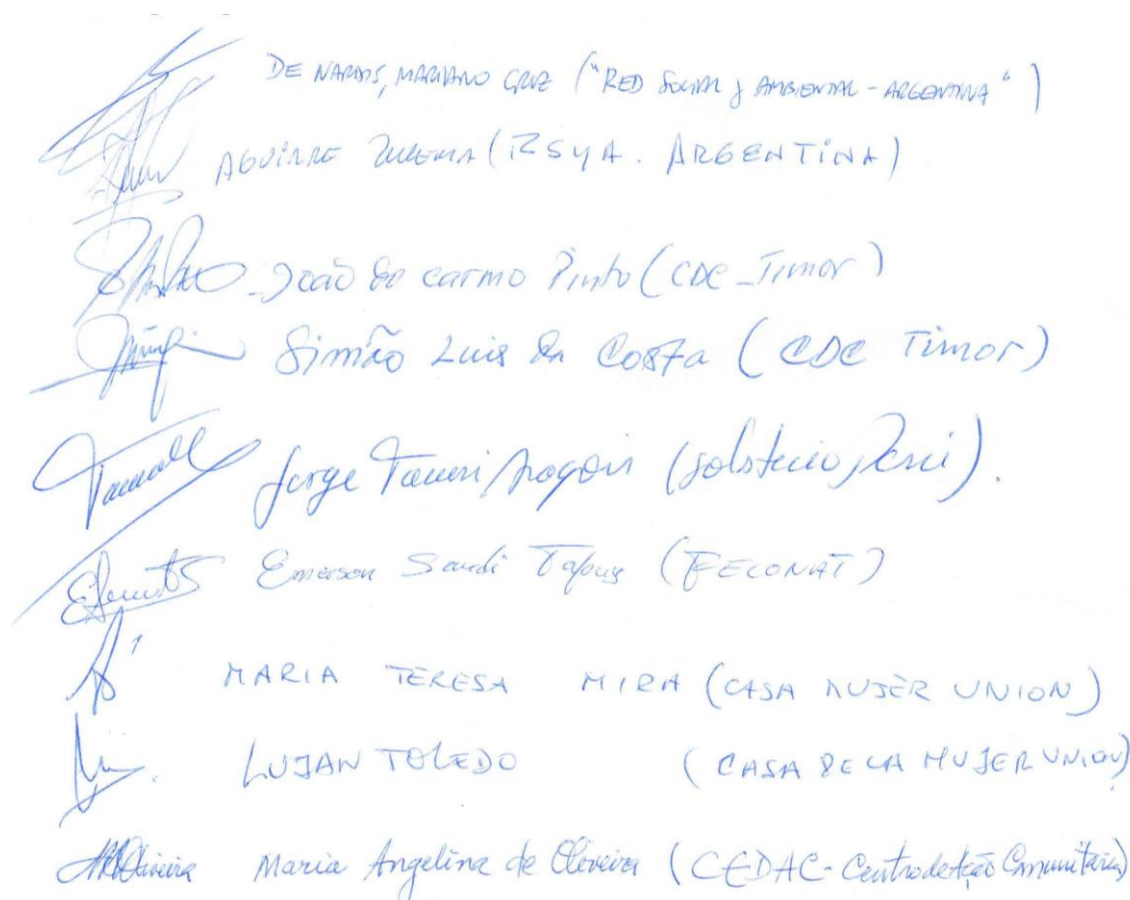 DE NARDIS, MARIANO CRUZ ("RED SOCIAL y AMBIENTAL - ARGENTINA")
AGUIRRE ZULEMA (RSYA. ARGENTINA)
João do carmo Pinto (CDC_Timor)
Simão Luis da Costa (CDC Timor)
Jorge Tacuri Aragón (Solsticio, Perú).
Emerson Sandi Tapuy (FECONAT)
MARIA TERESA MIRA (CASA MUJER UNION)
LUJAN TOLEDO (CASA DE LA MUJER UNION)
Maria Angelina de Oliveira (CEDAC - Centro de Ação Comunitária)